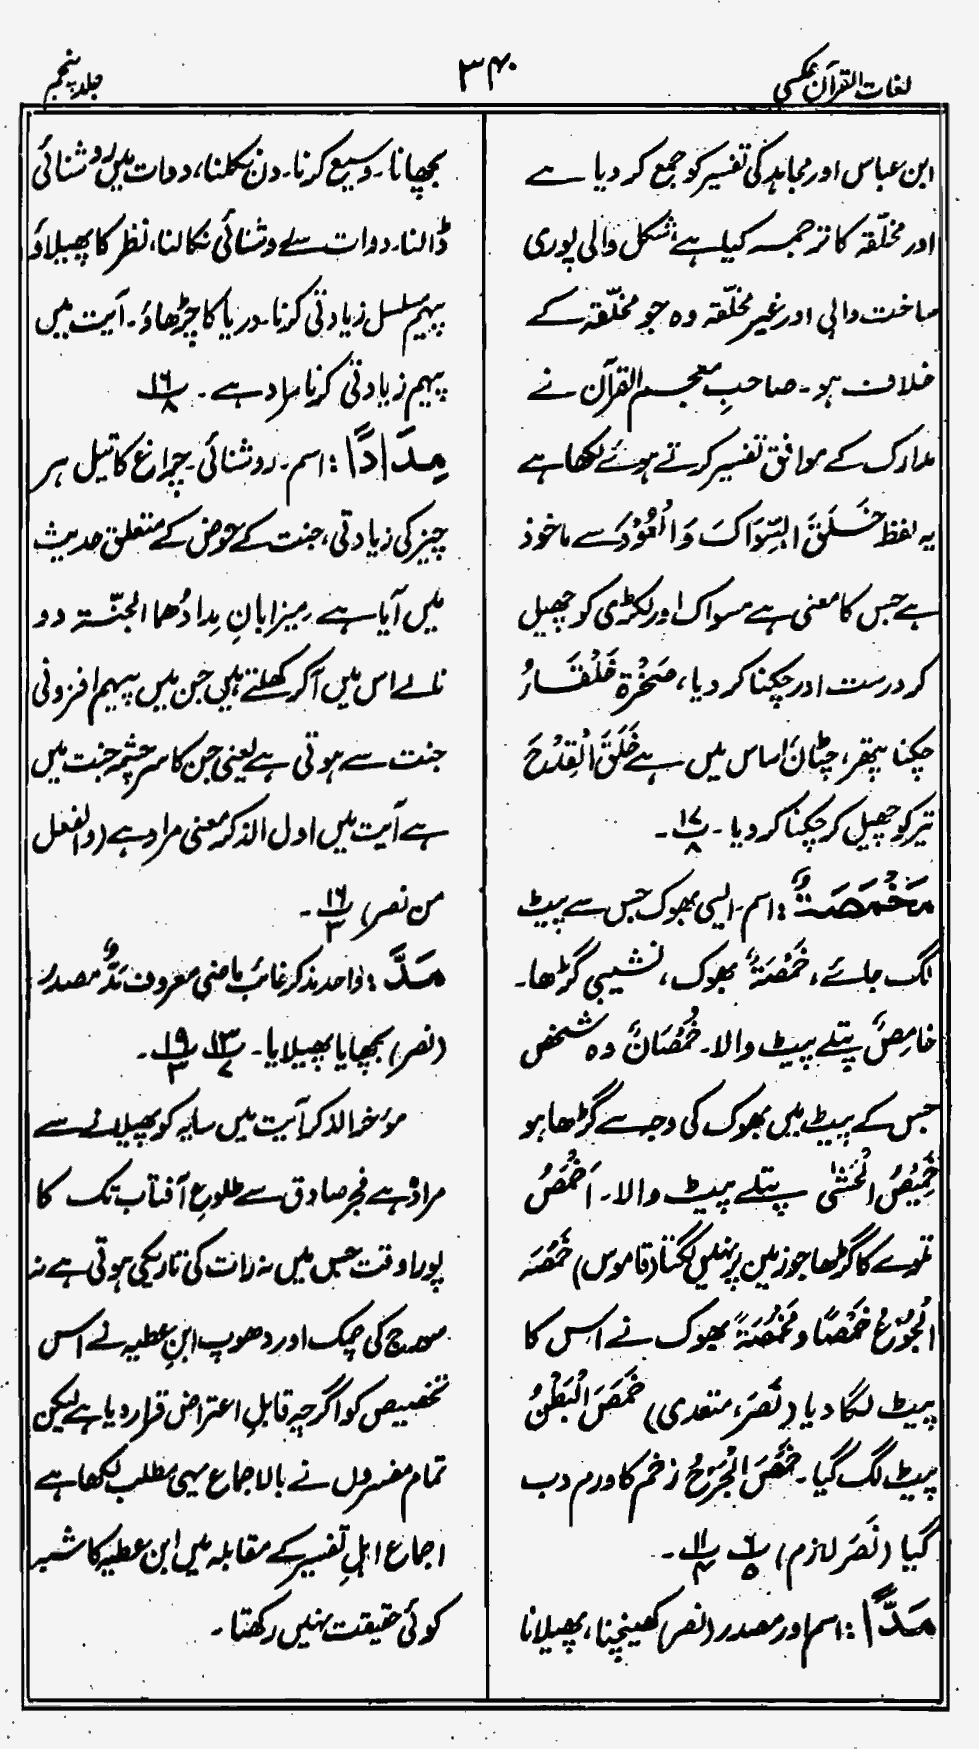 لغات القرآن عکسی
۳۴۰
جلد پنجم
ابن عباس اور مجاہد کی تفسیر کو جمع کر دیا ہے
اور مخلّقہ کا ترجمہ کیا ہے شکل والی پوری
ساخت والی اور غیر مخلّقہ وہ جو مخلّقہ کے
خلاف ہو۔ صاحبِ معجم القرآن نے
مدارک کے موافق تفسیر کرتے ہوئے لکھا ہے
یہ لفظ خَلَقَ السِّوَاکَ وَالْعُوْدَ سے ماخوذ
ہے جس کا معنی ہے مسواک اور لکڑی کو چھیل
کر درست اور چکنا کر دیا، صَخْرَۃ خَلْقَاءُ
چکنا پتھر، چٹان اساس میں ہے خَلَقَ الْقِدْحَ
تیر کو چھیل کر چکنا کر دیا۔ ۱۷/۸۔
مَخْمَصَۃٌ : اسم۔ ایسی بھوک جس سے پیٹ
لگ جائے، خَمْصَۃٌ بھوک، نشیبی گڑھا۔
خامِصٌ پتلے پیٹ والا۔ خُمْصَانٌ وہ شخص
جس کے پیٹ میں بھوک کی وجہ سے گڑھا ہو
خَمِیْصُ الْحَشٰی پتلے پیٹ والا۔ اَخْمَصُ
تلوے کا گڑھا جو زمین پر نہیں لگتا (قاموس) خَمَصَہُ
الْجُوْعُ خَمْصًا و مَخْمَصَۃً بھوک نے اس کا
پیٹ لگا دیا (نَصَرَ، متعدی) خَمَصَ الْبَطْنُ
پیٹ لگ گیا۔ خَمَصَ الْجُرْحُ زخم کا ورم دب
گیا (نَصَر لازم) ۶/۵ ۱۱/۴۔
مَدًّا : اسم اور مصدر (نصر) کھینچنا، پھیلانا
بچھانا۔ وسیع کرنا۔ دن نکلنا، دوات میں روشنائی
ڈالنا۔ دوات سے روشنائی نکالنا، نظر کا پھیلاؤ
پیہم مسلسل زیادتی کرنا۔ دریا کا چڑھاؤ۔ آیت میں
پیہم زیادتی کرنا مراد ہے۔ ۱۶/۸
مِدَادًا : اسم۔ روشنائی۔ چراغ کا تیل ہر
چیز کی زیادتی، جنت کے حوض کے متعلق حدیث
میں آیا ہے میزابانِ مِدادُھما الجنّۃ دو
نالے اس میں آکر کھلتے ہیں جن میں پیہم افزونی
جنت سے ہوتی ہے یعنی جن کا سرچشمہ جنت میں
ہے آیت میں اول الذکر معنی مراد ہے (والفعل
من نصر) ۱۶/۳۔
مَدَّ : واحد مذکر غائب ماضی معروف مَدٌّ مصدر
(نصر) بچھایا پھیلایا۔ ۱۳/۷ ۱۹/۳۔
مؤخر الذکر آیت میں سایہ کو پھیلانے سے
مراد ہے فجر صادق سے طلوعِ آفتاب تک کا
پورا وقت جس میں نہ رات کی تاریکی ہوتی ہے نہ
سورج کی چمک اور دھوپ ابنِ عطیہ نے اس
تخصیص کو اگرچہ قابلِ اعتراض قرار دیا ہے لیکن
تمام مفسروں نے بالاجماع یہی مطلب لکھا ہے
اجماعِ اہلِ تفسیر کے مقابلہ میں ابن عطیہ کا شبہ
کوئی حقیقت نہیں رکھتا۔